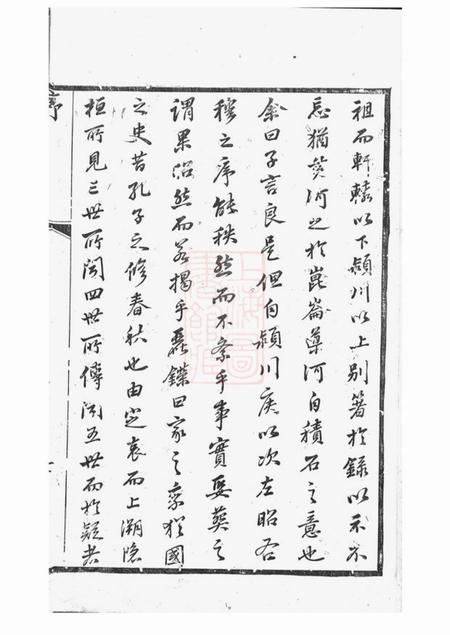 祖而軒轅以下潁川以上別箸於錄以示不
忘猶黃河之於崑崙導河自積石之意也
余曰子言良是但自潁川矦以次左昭右
穆之序能秩然而不紊乎事實
謂果沼然而若揭乎曰家之乘猶國
之史昔孔子之修春秋也由定哀而上溯隱
桓所見三世所聞四世所傳聞五世而於疑者
序